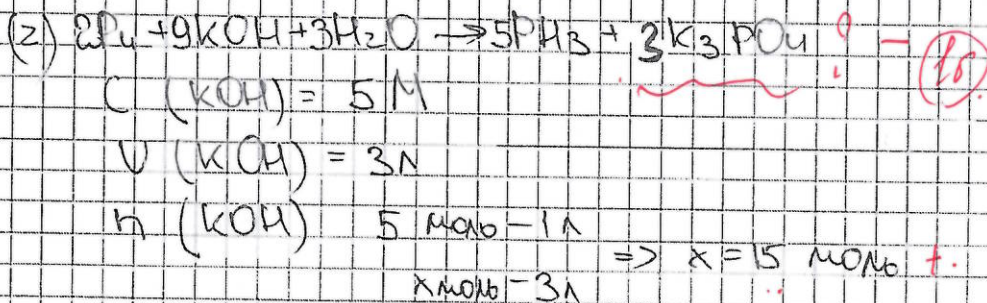 (2) 2P₄ + 9KOH + 3H₂O → 5PH₃ + 3K₃PO₄ ? - (1б)
C (KOH) = 5 M
V (KOH) = 3л
n (KOH) 5 моль - 1л
=> x = 15 моль +.
x моль - 3л